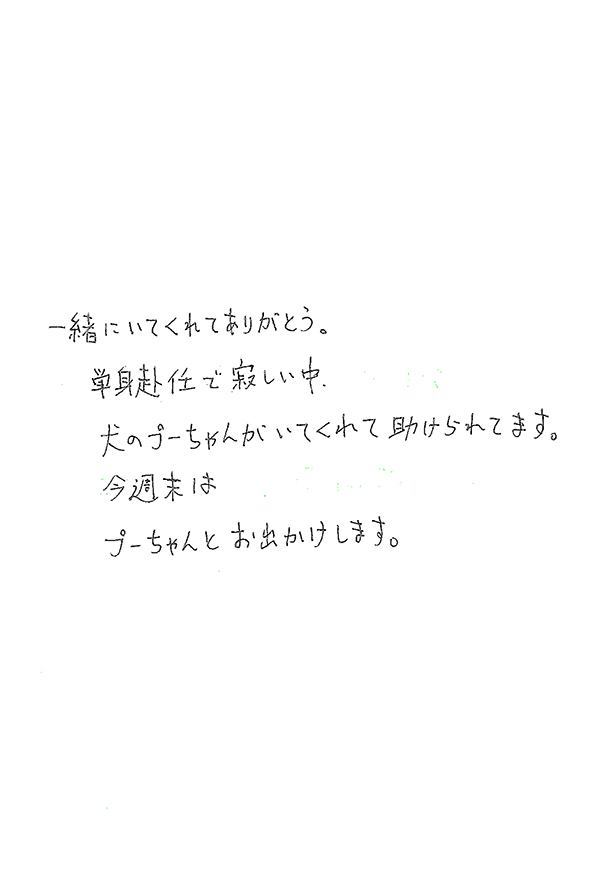 一緒にいてくれてありがとう。
単身赴任で寂しい中、
犬のプーちゃんがいてくれて助けられてます。
今週末は
プーちゃんとお出かけします。